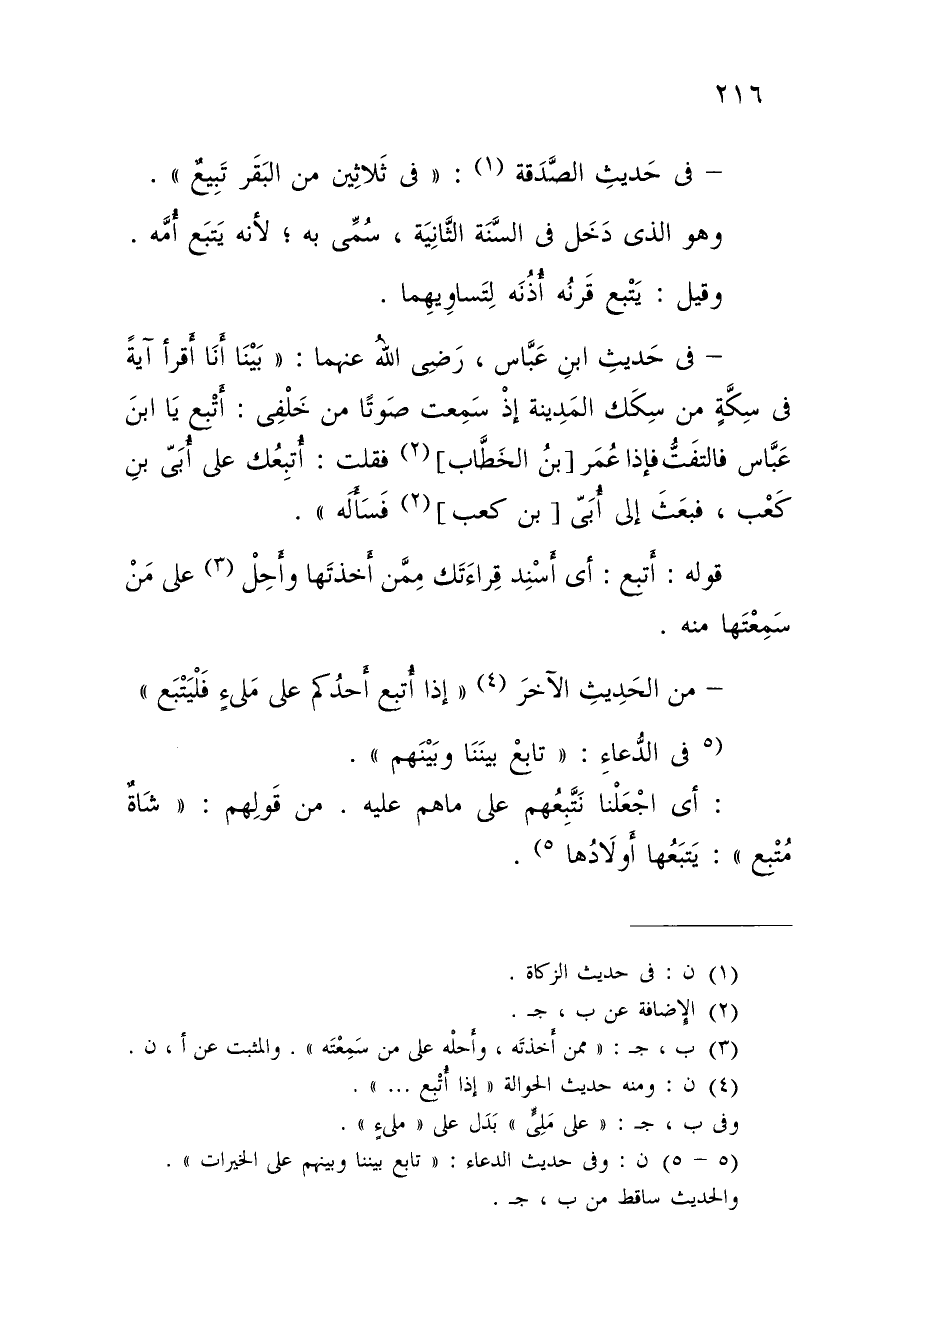 ٢١٦
– فى حَديثِ الصَّدَقة (١) : « فى ثَلاثِين من البَقَر تَبِيعٌ » .
وهو الذى دَخَل فى السَّنَة الثَّانِيَة ، سُمِّى به ؛ لأنه يَتبَع أُمَّه .
وقيل : يَتْبع قَرنُه أُذُنَه لِتَساوِيهِما .
– فى حَديثِ ابنِ عَبَّاس ، رَضِى اللهُ عنهما : « بَيْنَا أَنَا أَقرأ آيةً
فى سِكَّةٍ من سِكَك المَدِينة إذْ سَمِعت صَوتًا من خَلْفِى : أَتْبِع يَا ابنَ
عَبَّاس فالتفَتُّ فإذا عُمَر [بنُ الخَطَّاب] (٢) فقلت : أُتبِعُك على أُبَىّ بنِ
كَعْب ، فبعَثَ إلى أُبَىّ [ بن كعب ] (٢) فَسَأَلَه » .
قوله : أَتبع : أى أَسْنِد قِراءَتَك مِمَّن أَخذتَها وأَحِلْ (٣) على مَنْ
سَمِعْتَها منه .
– من الحَدِيثِ الآخَرَ (٤) « إذا أُتبِع أَحدُكم على مَلىءٍ فَلْيَتْبَع »
(٥ فى الدُّعاءِ : « تابِعْ بينَنَا وبَيْنَهم » .
: أى اجْعَلْنا نَتَّبِعُهم على ماهم عليه . من قَولِهم : « شَاةٌ
مُتْبِع » : يَتبَعُها أَولَادُها ٥) .
(١) ن : فى حديث الزكاة .
(٢) الإِضافة عن ب ، جـ .
(٣) ب ، جـ : « ممن أَخذتَه ، وأَحلْه على من سَمِعْتَه » . والمثبت عن أ ، ن .
(٤) ن : ومنه حديث الحوالة « إذا أُتْبِع ... » .
وفى ب ، جـ : « على مَلِىٍّ » بَدَل على « ملىءٍ » .
(٥ – ٥) ن : وفى حديث الدعاء : « تابع بيننا وبينهم على الخيرات » .
والحديث ساقط من ب ، جـ .